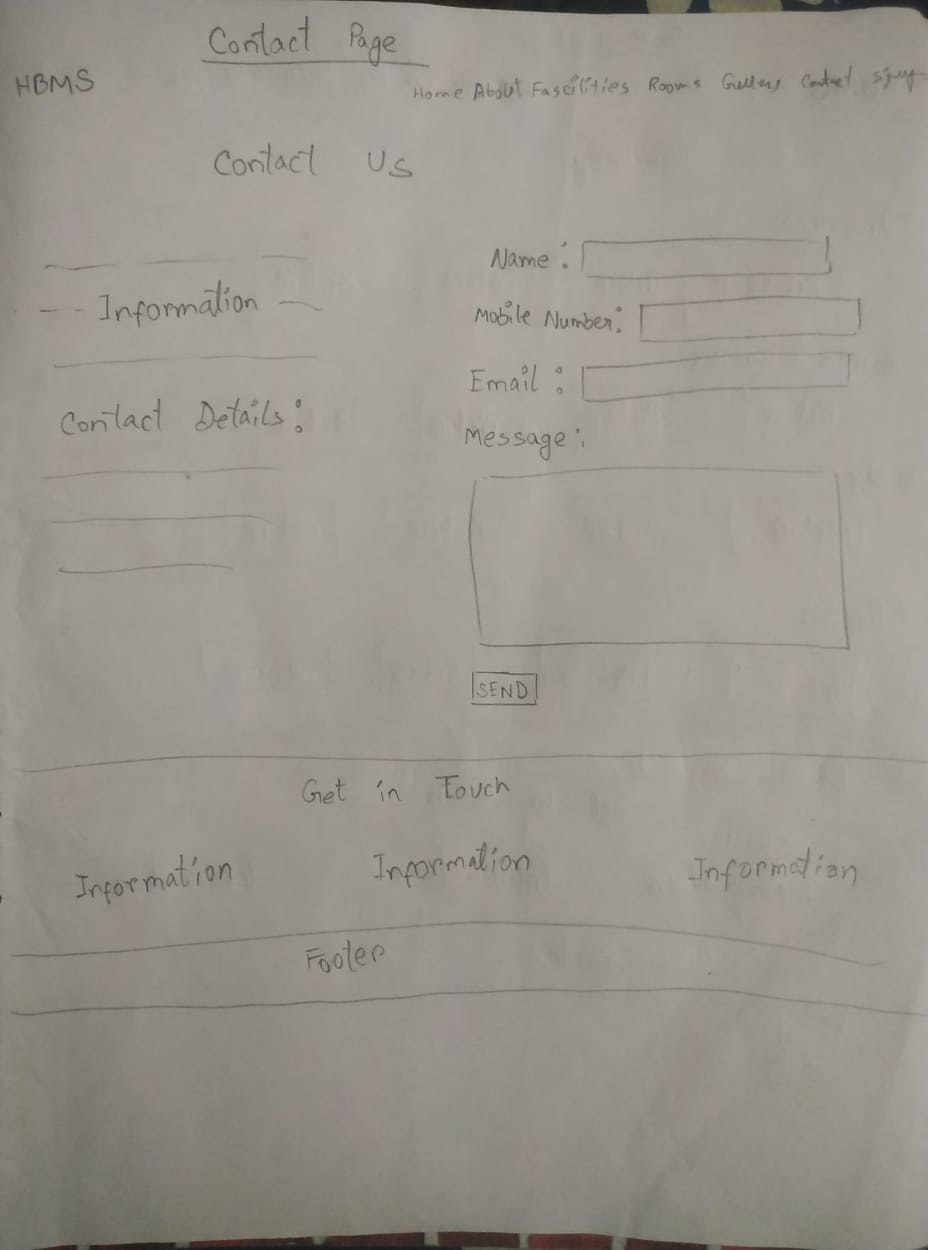 Contact Page
HBMS
Home About Fascilities Rooms Gallery Contact
Contact Us
Information
Contact Details:
Name:
Mobile Number:
Email:
Message:
SEND
Get in Touch
Information Information Information
Footer